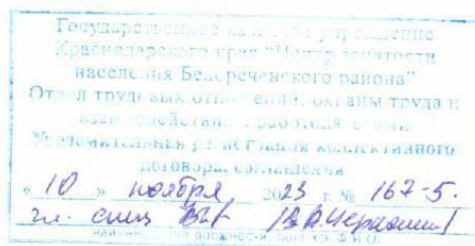 Государственное казенное учреждение
Краснодарского края "Центр занятости
населения Белореченского района"
Отдел трудовых отношений, охраны труда и
взаимодействия с работодателями
Уведомительная регистрация коллективного
договора, соглашения
« 10 » ноября 2023 г. № 167-5.
гл. спец